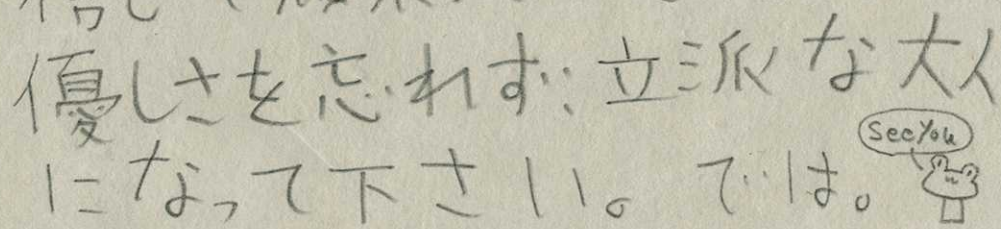 優しさを忘れず、立派な大人
になって下さい。では。
See You